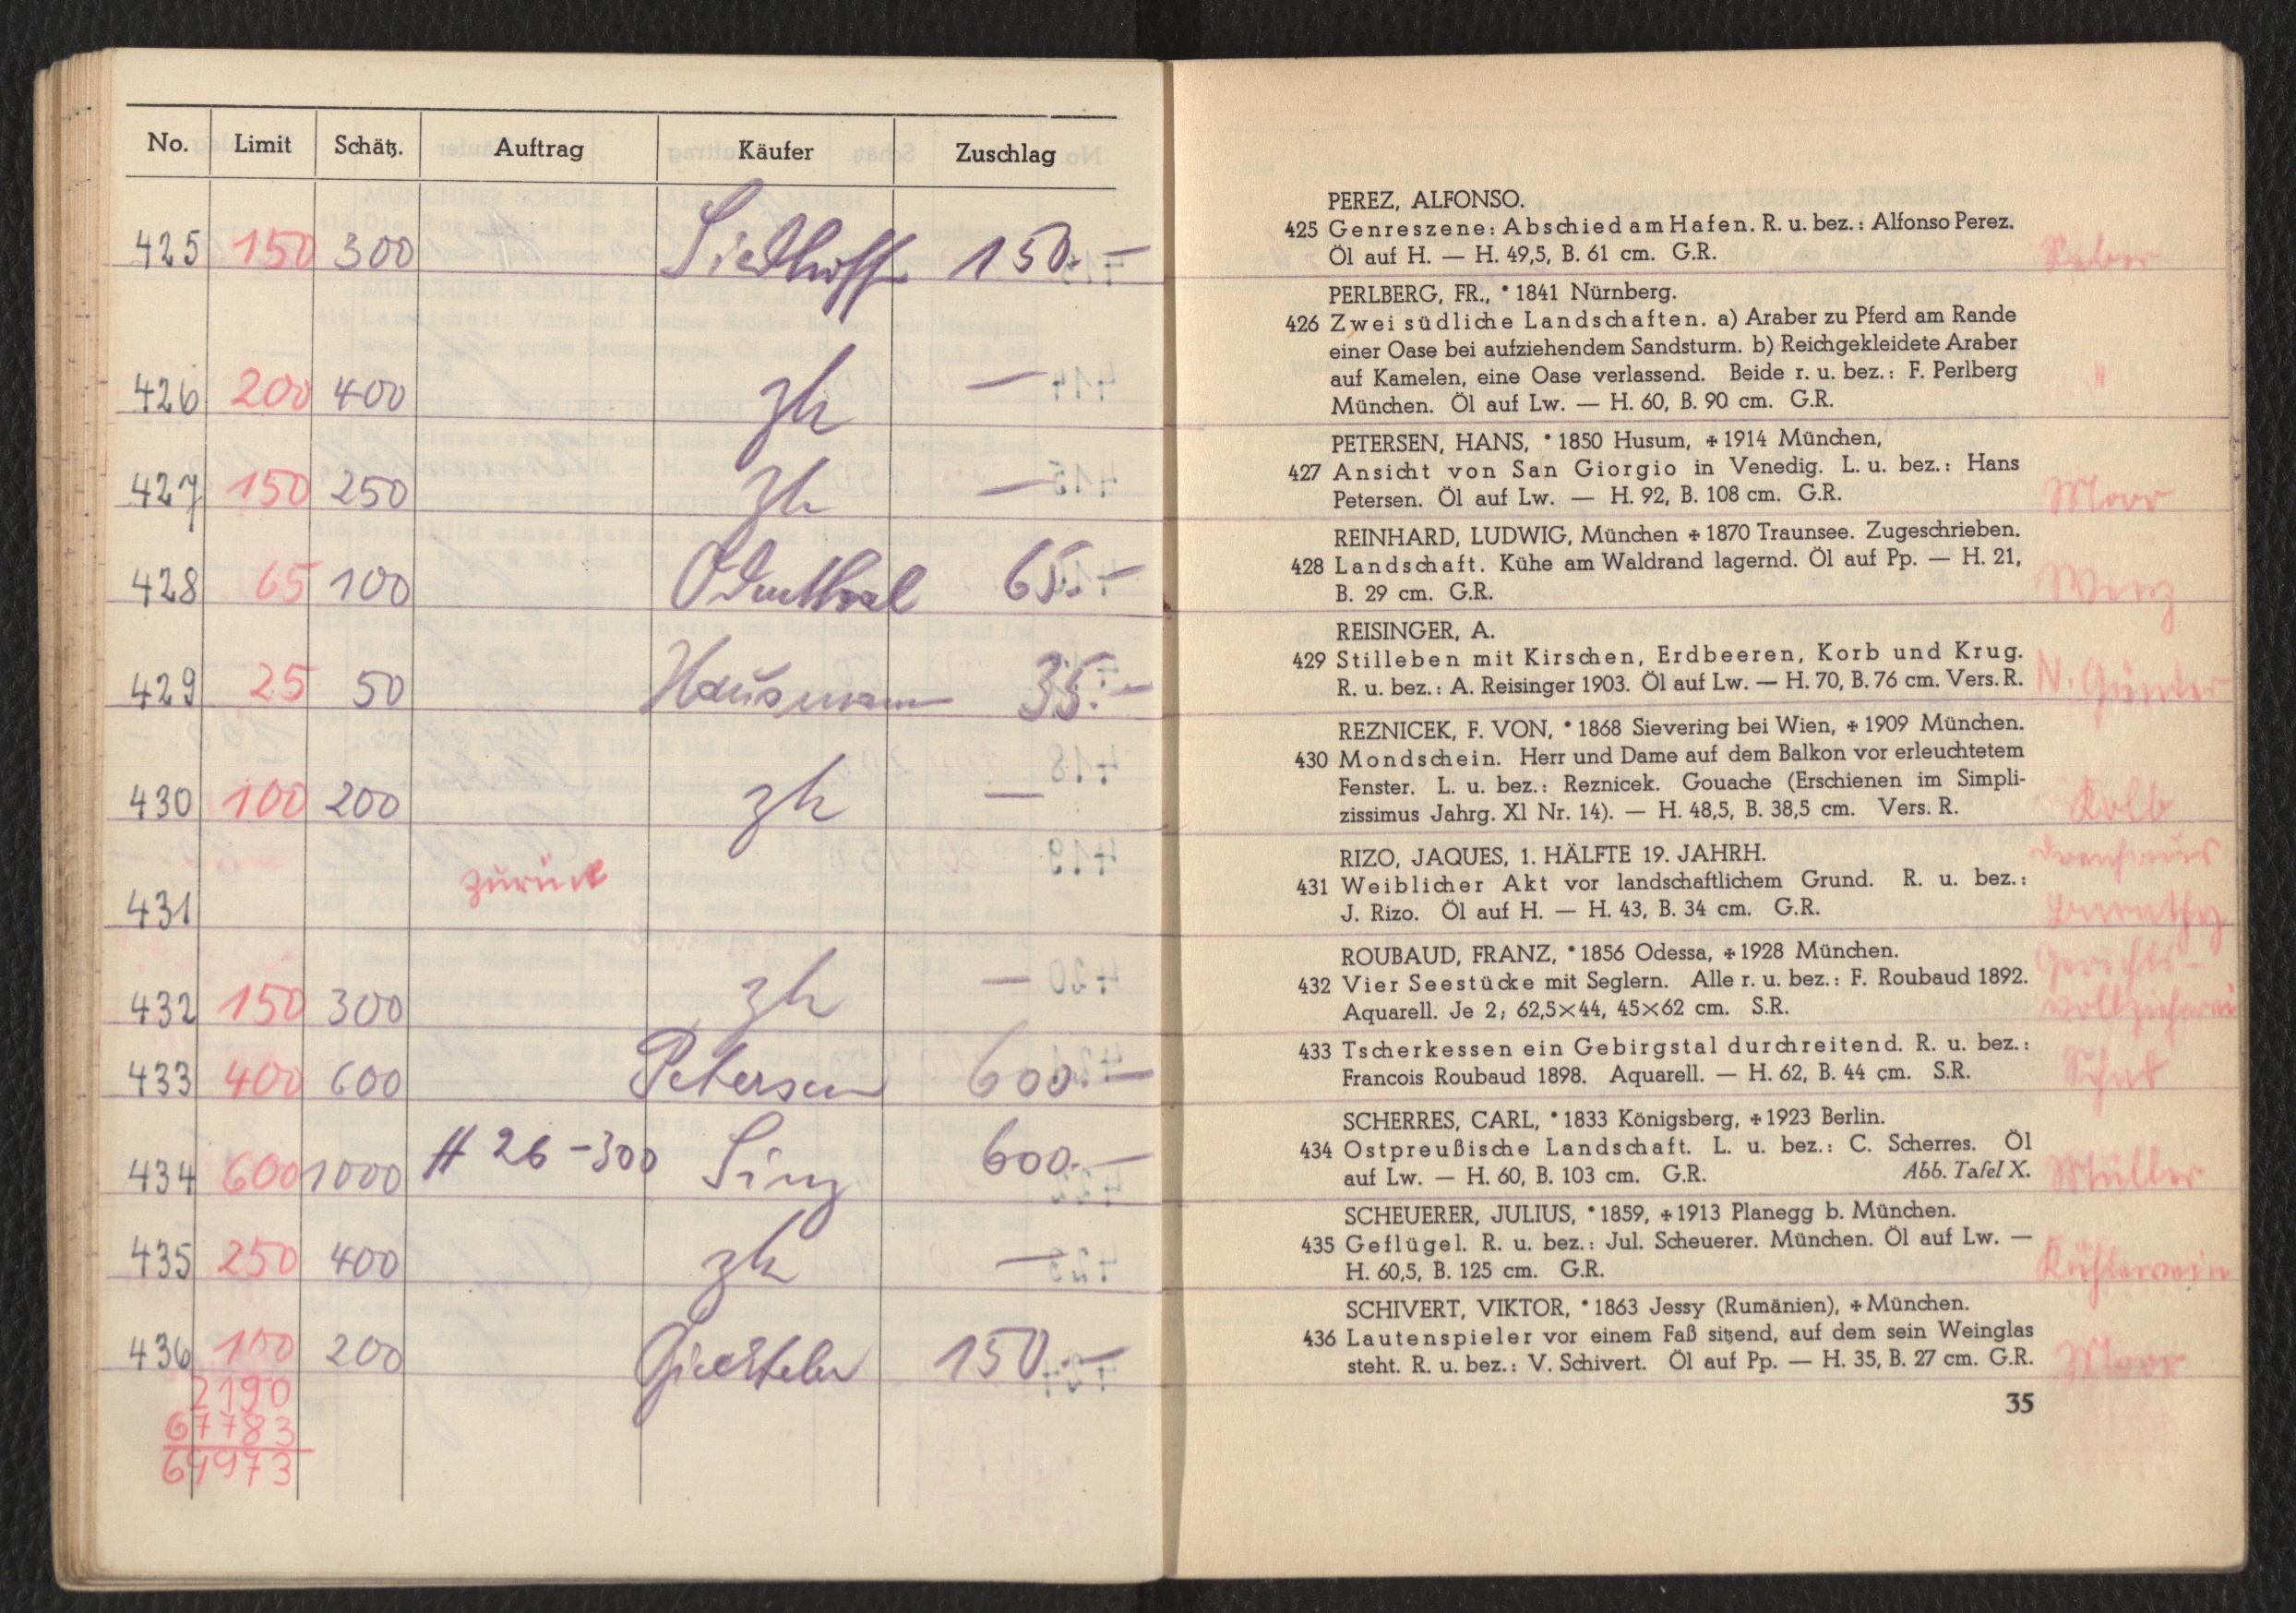 No. Limit Schätz. Auftrag Käufer Zuschlag
425 150 300 Siedhoff 150.-
426 200 400 zh —
427 150 250 zh —
428 65 100 Odenthal 65.-
429 25 50 Hausmann 35.-
430 100 200 zh —
431 zurück
432 150 300 zh —
433 400 600 Petersen 600.-
434 600 1000 # 26 - 300 Sinz 600.-
435 250 400 zh —
436 100 200 150.-
2190
67783
69973
PEREZ, ALFONSO.
425 Genreszene: Abschied am Hafen. R. u. bez.: Alfonso Perez.
Öl auf H. — H. 49,5, B. 61 cm. G.R.
PERLBERG, FR., * 1841 Nürnberg.
426 Zwei südliche Landschaften. a) Araber zu Pferd am Rande
einer Oase bei aufziehendem Sandsturm. b) Reichgekleidete Araber
auf Kamelen, eine Oase verlassend. Beide r. u. bez.: F. Perlberg "
München. Öl auf Lw. — H. 60, B. 90 cm. G.R.
PETERSEN, HANS, * 1850 Husum, ✠ 1914 München,
427 Ansicht von San Giorgio in Venedig. L. u. bez.: Hans
Petersen. Öl auf Lw. — H. 92, B. 108 cm. G.R. Moor
REINHARD, LUDWIG, München ✠ 1870 Traunsee. Zugeschrieben.
428 Landschaft. Kühe am Waldrand lagernd. Öl auf Pp. — H. 21,
B. 29 cm. G.R.
REISINGER, A.
429 Stilleben mit Kirschen, Erdbeeren, Korb und Krug.
R. u. bez.: A. Reisinger 1903. Öl auf Lw. — H. 70, B. 76 cm. Vers. R. N. Günter
REZNICEK, F. VON, * 1868 Sievering bei Wien, ✠ 1909 München.
430 Mondschein. Herr und Dame auf dem Balkon vor erleuchtetem
Fenster. L. u. bez.: Reznicek. Gouache (Erschienen im Simpli-
zissimus Jahrg. XI Nr. 14). — H. 48,5, B. 38,5 cm. Vers. R. Kolb
RIZO, JAQUES, 1. HÄLFTE 19. JAHRH.
431 Weiblicher Akt vor landschaftlichem Grund. R. u. bez.:
J. Rizo. Öl auf H. — H. 43, B. 34 cm. G.R.
ROUBAUD, FRANZ, * 1856 Odessa, ✠ 1928 München. Gerichts-
432 Vier Seestücke mit Seglern. Alle r. u. bez.: F. Roubaud 1892.
Aquarell. Je 2; 62,5×44, 45×62 cm. S.R.
433 Tscherkessen ein Gebirgstal durchreitend. R. u. bez.:
Francois Roubaud 1898. Aquarell. — H. 62, B. 44 cm. S.R.
SCHERRES, CARL, * 1833 Königsberg, ✠ 1923 Berlin.
434 Ostpreußische Landschaft. L. u. bez.: C. Scherres. Öl
auf Lw. — H. 60, B. 103 cm. G.R. Abb. Tafel X. Müller
SCHEUERER, JULIUS, * 1859, ✠ 1913 Planegg b. München.
435 Geflügel. R. u. bez.: Jul. Scheuerer. München. Öl auf Lw. —
H. 60,5, B. 125 cm. G.R.
SCHIVERT, VIKTOR, * 1863 Jessy (Rumänien), ✠ München.
436 Lautenspieler vor einem Faß sitzend, auf dem sein Weinglas
steht. R. u. bez.: V. Schivert. Öl auf Pp. — H. 35, B. 27 cm. G.R. Moor
35